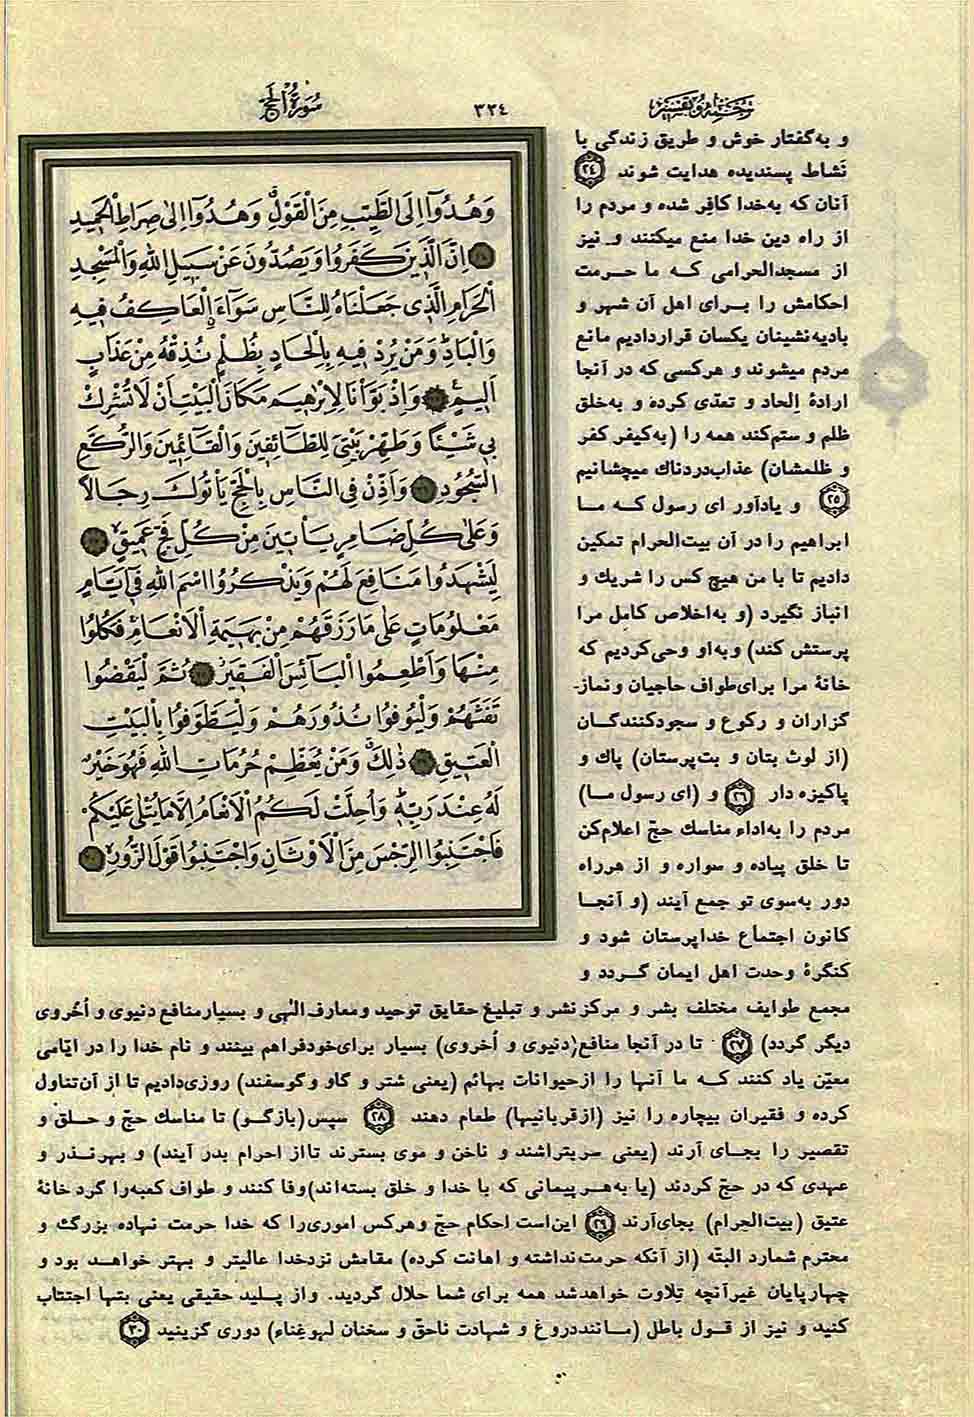 ترجمه و تفسیر
٣٢٤
سُورَةُ الْحَجِّ
وَهُدُوٓا اِلَى الطَّيِّبِ مِنَ الْقَوْلِ وَهُدُوٓا اِلىٰ صِرَاطِ الْحَمِيدِ
اِنَّ الَّذِينَ كَفَرُوا وَيَصُدُّونَ عَنْ سَبِيلِ اللهِ وَالْمَسْجِدِ
الْحَرَامِ الَّذِى جَعَلْنَاهُ لِلنَّاسِ سَوَآءً الْعَاكِفُ فِيهِ
وَالْبَادِ وَمَنْ يُرِدْ فِيهِ بِاِلْحَادٍ بِظُلْمٍ نُذِقْهُ مِنْ عَذَابٍ
اَلِيمٍ وَاِذْ بَوَّأْنَا لِاِبْرٰهِيمَ مَكَانَ الْبَيْتِ اَنْ لَا تُشْرِكْ
بِى شَيْئًا وَطَهِّرْ بَيْتِىَ لِلطَّآئِفِينَ وَالْقَآئِمِينَ وَالرُّكَّعِ
السُّجُودِ وَاَذِّنْ فِى النَّاسِ بِالْحَجِّ يَأْتُوكَ رِجَالًا
وَعَلىٰ كُلِّ ضَامِرٍ يَأْتِينَ مِنْ كُلِّ فَجٍّ عَمِيقٍ
لِيَشْهَدُوا مَنَافِعَ لَهُمْ وَيَذْكُرُوا اسْمَ اللهِ فِىٓ اَيَّامٍ
مَعْلُومَاتٍ عَلىٰ مَا رَزَقَهُمْ مِنْ بَهِيمَةِ الْاَنْعَامِ فَكُلُوا
مِنْهَا وَاَطْعِمُوا الْبَآئِسَ الْفَقِيرَ ثُمَّ لْيَقْضُوا
تَفَثَهُمْ وَلْيُوفُوا نُذُورَهُمْ وَلْيَطَّوَّفُوا بِالْبَيْتِ
الْعَتِيقِ ذٰلِكَ وَمَنْ يُعَظِّمْ حُرُمَاتِ اللهِ فَهُوَ خَيْرٌ
لَهُ عِنْدَ رَبِّهِ وَاُحِلَّتْ لَكُمُ الْاَنْعَامُ اِلَّا مَا يُتْلىٰ عَلَيْكُمْ
فَاجْتَنِبُوا الرِّجْسَ مِنَ الْاَوْثَانِ وَاجْتَنِبُوا قَوْلَ الزُّورِ
و به‌گفتار خوش و طریق زندگی با
نَشاط پسندیده هدایت شوند ٢٤
آنان که به‌خدا کافِر شده و مردم را
از راه دین خدا منع میکنند و نیز
از مسجدالحرامی که ما حرمت
احکامش را برای اهل آن شهر و
بادیه‌نشینان یکسان قراردادیم مانع
مردم میشوند و هرکسی که در آنجا
ارادهٔ اِلحاد و تعدّی کرده و به‌خلق
ظلم و ستم‌کند همه را (به‌کیفر کفر
و ظلمشان) عذاب‌دردناك میچشانیم
٢٥ و یادآور ای رسول که ما
ابراهیم را در آن بیت‌الحرام تمکین
دادیم تا با من هیچ کس را شریك و
انباز نگیرد (و به‌اخلاص کامل مرا
پرستش کند) و به‌او وحی‌کردیم که
خانهٔ مرا برای‌طواف حاجیان و نماز-
گزاران و رکوع و سجودکنندگان
(از لوث بتان و بت‌پرستان) پاك و
پاکیزه دار ٢٦ و (ای رسول ما)
مردم را به‌اداء مناسك حجّ اعلام‌کن
تا خلق پیاده و سواره و از هرراه
دور به‌سوی تو جمع آیند (و آنجا
کانون اجتماع خداپرستان شود و
کنگرهٔ وحدت اهل ایمان گردد و
مجمع طوایف مختلف بشر و مرکز نشر و تبلیغ حقایق توحید و معارف الٰهی و بسیار منافع دنیوی و اُخروی
دیگر گردد) ٢٧ تا در آنجا منافع(دنیوی و اُخروی) بسیار برای‌خودفراهم بینند و نام خدا را در ایّامی
معیّن یاد کنند که ما آنها را ازحیوانات بهائم (یعنی شتر و گاو و گوسفند) روزی‌دادیم تا از آن‌تناول
کرده و فقیران بیچاره را نیز (ازقربانیها) طعام دهند ٢٨ سپس(بازگو) تا مناسك حجّ و حلق و
تقصیر را بجای آرند (یعنی سربتراشند و ناخن و موی بسترند تااز احرام بدر آیند) و بهرنذر و
عهدی که در حجّ کردند (یا به‌هرپیمانی که با خدا و خلق بسته‌اند)وفا کنند و طواف کعبه‌را گرد خانهٔ
عتیق (بیت‌الحرام) بجای‌آرند ٢٩ این‌است احکام حجّ و هرکس اموری‌را که خدا حرمت نهاده بزرگ و
محترم شمارد البتّه (از آنکه حرمت‌نداشته و اهانت کرده) مقامش نزدخدا عالیتر و بهتر خواهد بود و
چهارپایان غیرآنچه تِلاوت خواهدشد همه برای شما حلال گردید. و از پلید حقیقی یعنی بتها اجتتاب
کنید و نیز از قول باطل (ماننددروغ و شهادت ناحقّ و سخنان لهووغِناء) دوری گزینید ٣٠